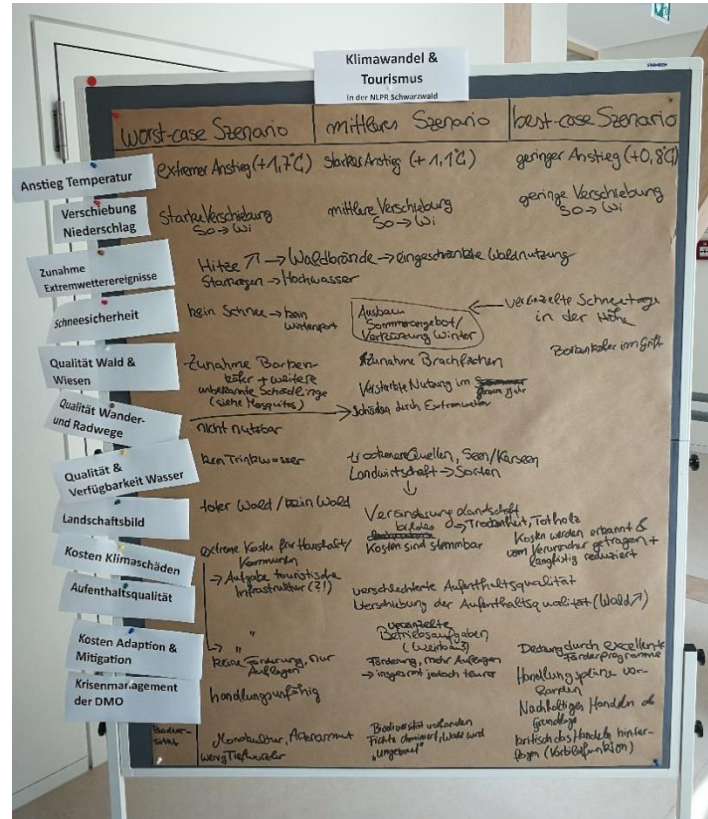 Klimawandel &
Tourismus
in der NLPR Schwarzwald
worst-case Szenario
mittleres Szenario
best-case Szenario
Anstieg Temperatur
extremer Anstieg (+1,7°C)
starker Anstieg (+1,1°C)
geringer Anstieg (+0,8°C)
Verschiebung
Niederschlag
starke Verschiebung
So → Wi
mittlere Verschiebung
So → Wi
geringe Verschiebung
So → Wi
Zunahme
Extremwetterereignisse
Hitze ↗ → Waldbrände → eingeschränkte Waldnutzung
Starkregen → Hochwasser
Schneesicherheit
kein Schnee → kein
Wintersport
Ausbau
Sommerangebot/
Verkürzung Winter
← vereinzelte Schneetage
in der Höhe
Qualität Wald &
Wiesen
Zunahme Borken-
käfer + weitere
unbekannte Schädlinge
(siehe Mosquitos)
Zunahme Brachflächen
Verstärkte Nutzung im
Borkenkäfer im Griff
Qualität Wander-
und Radwege
nicht nutzbar
→ Schäden durch Extremwetter
Qualität &
Verfügbarkeit Wasser
kein Trinkwasser
trockenere Quellen, Seen/Karseen
Landwirtschaft → Sorten
↓
Landschaftsbild
toter Wald / kein Wald
Veränderung Landschaft
bildes → Trockenheit, Totholz
Kosten Klimaschäden
extreme Kosten für Haushalt/
Kommunen
→ Aufgabe touristische
Infrastruktur (?!)
Kosten sind stemmbar
Kosten werden erkannt &
vom Verursacher getragen +
langfristig reduziert
Aufenthaltsqualität
verschlechterte Aufenthaltsqualität
Verschiebung der Aufenthaltsqualität (Wald ↗)
Kosten Adaption &
Mitigation
→ "
keine Förderung, nur
Auflagen
vereinzelte
Betriebsaufgaben
Förderung, mehr Auflagen
→ insgesamt jedoch teurer
Deckung durch excellente
Förderprogramme
Krisenmanagement
der DMO
handlungsunfähig
Handlungspläne vor-
handen
Nachhaltiges Handeln als
Grundlage
kritisch das Handeln hinter-
fragen (Vorbildfunktion)
Biodiver-
sität
Monokultur, Artenarmut
wenig Tiefwurzler
Biodiversität vorhanden
Fichte dominiert, Wald wird
„umgebaut"